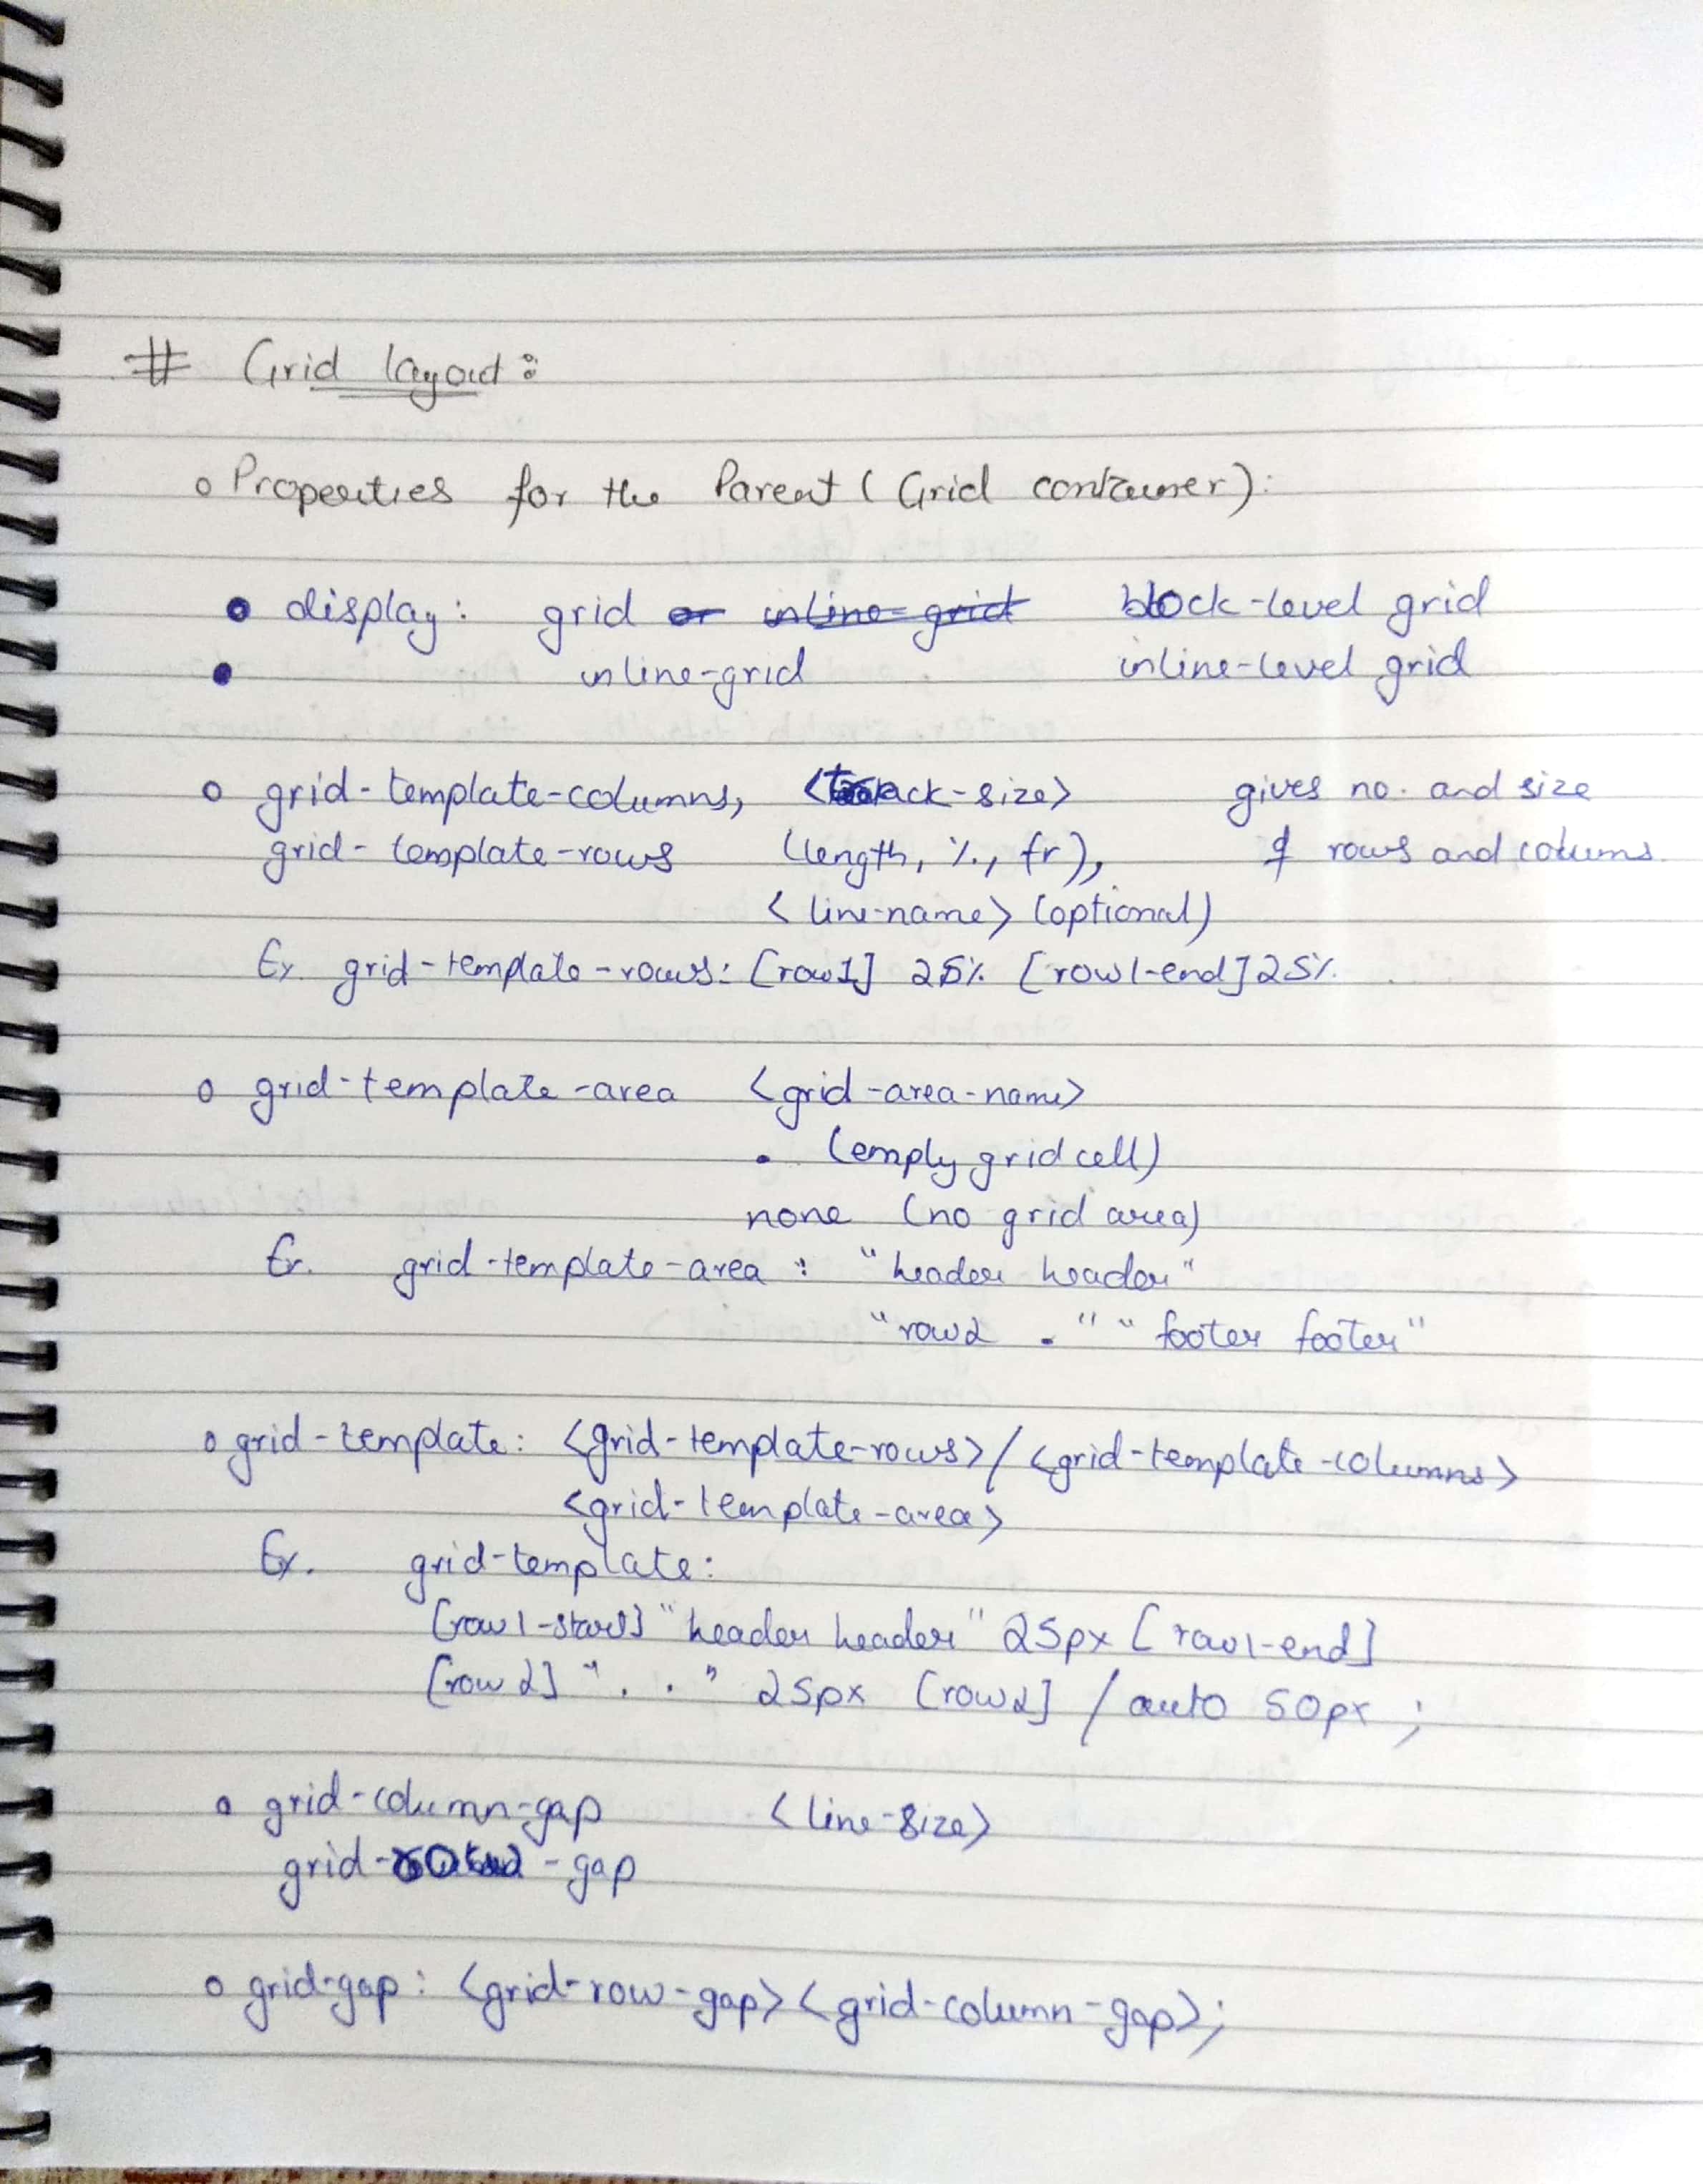 # Grid layout:
o Properties for the Parent ( Grid container):
• display: grid or inline-grid block-level grid
• inline-grid inline-level grid
o grid-template-columns, <track-size> gives no. and size
grid-template-rows (length, %, fr), of rows and colums.
<line-name> (optional)
Ex. grid-template-rows: [row1] 25% [row1-end] 25%
o grid-template-area <grid-area-name>
. (emply grid cell)
none (no grid area)
Ex. grid-template-area : "header header"
"row2 ." "footer footer"
o grid-template: <grid-template-rows> / <grid-template-columns>
<grid-template-area>
Ex. grid-template:
[row1-start] "header header" 25px [row1-end]
[row2] ". ." 25px [row2] / auto 50px ;
o grid-column-gap <line-size>
grid-row-gap
o grid-gap: <grid-row-gap> <grid-column-gap>;